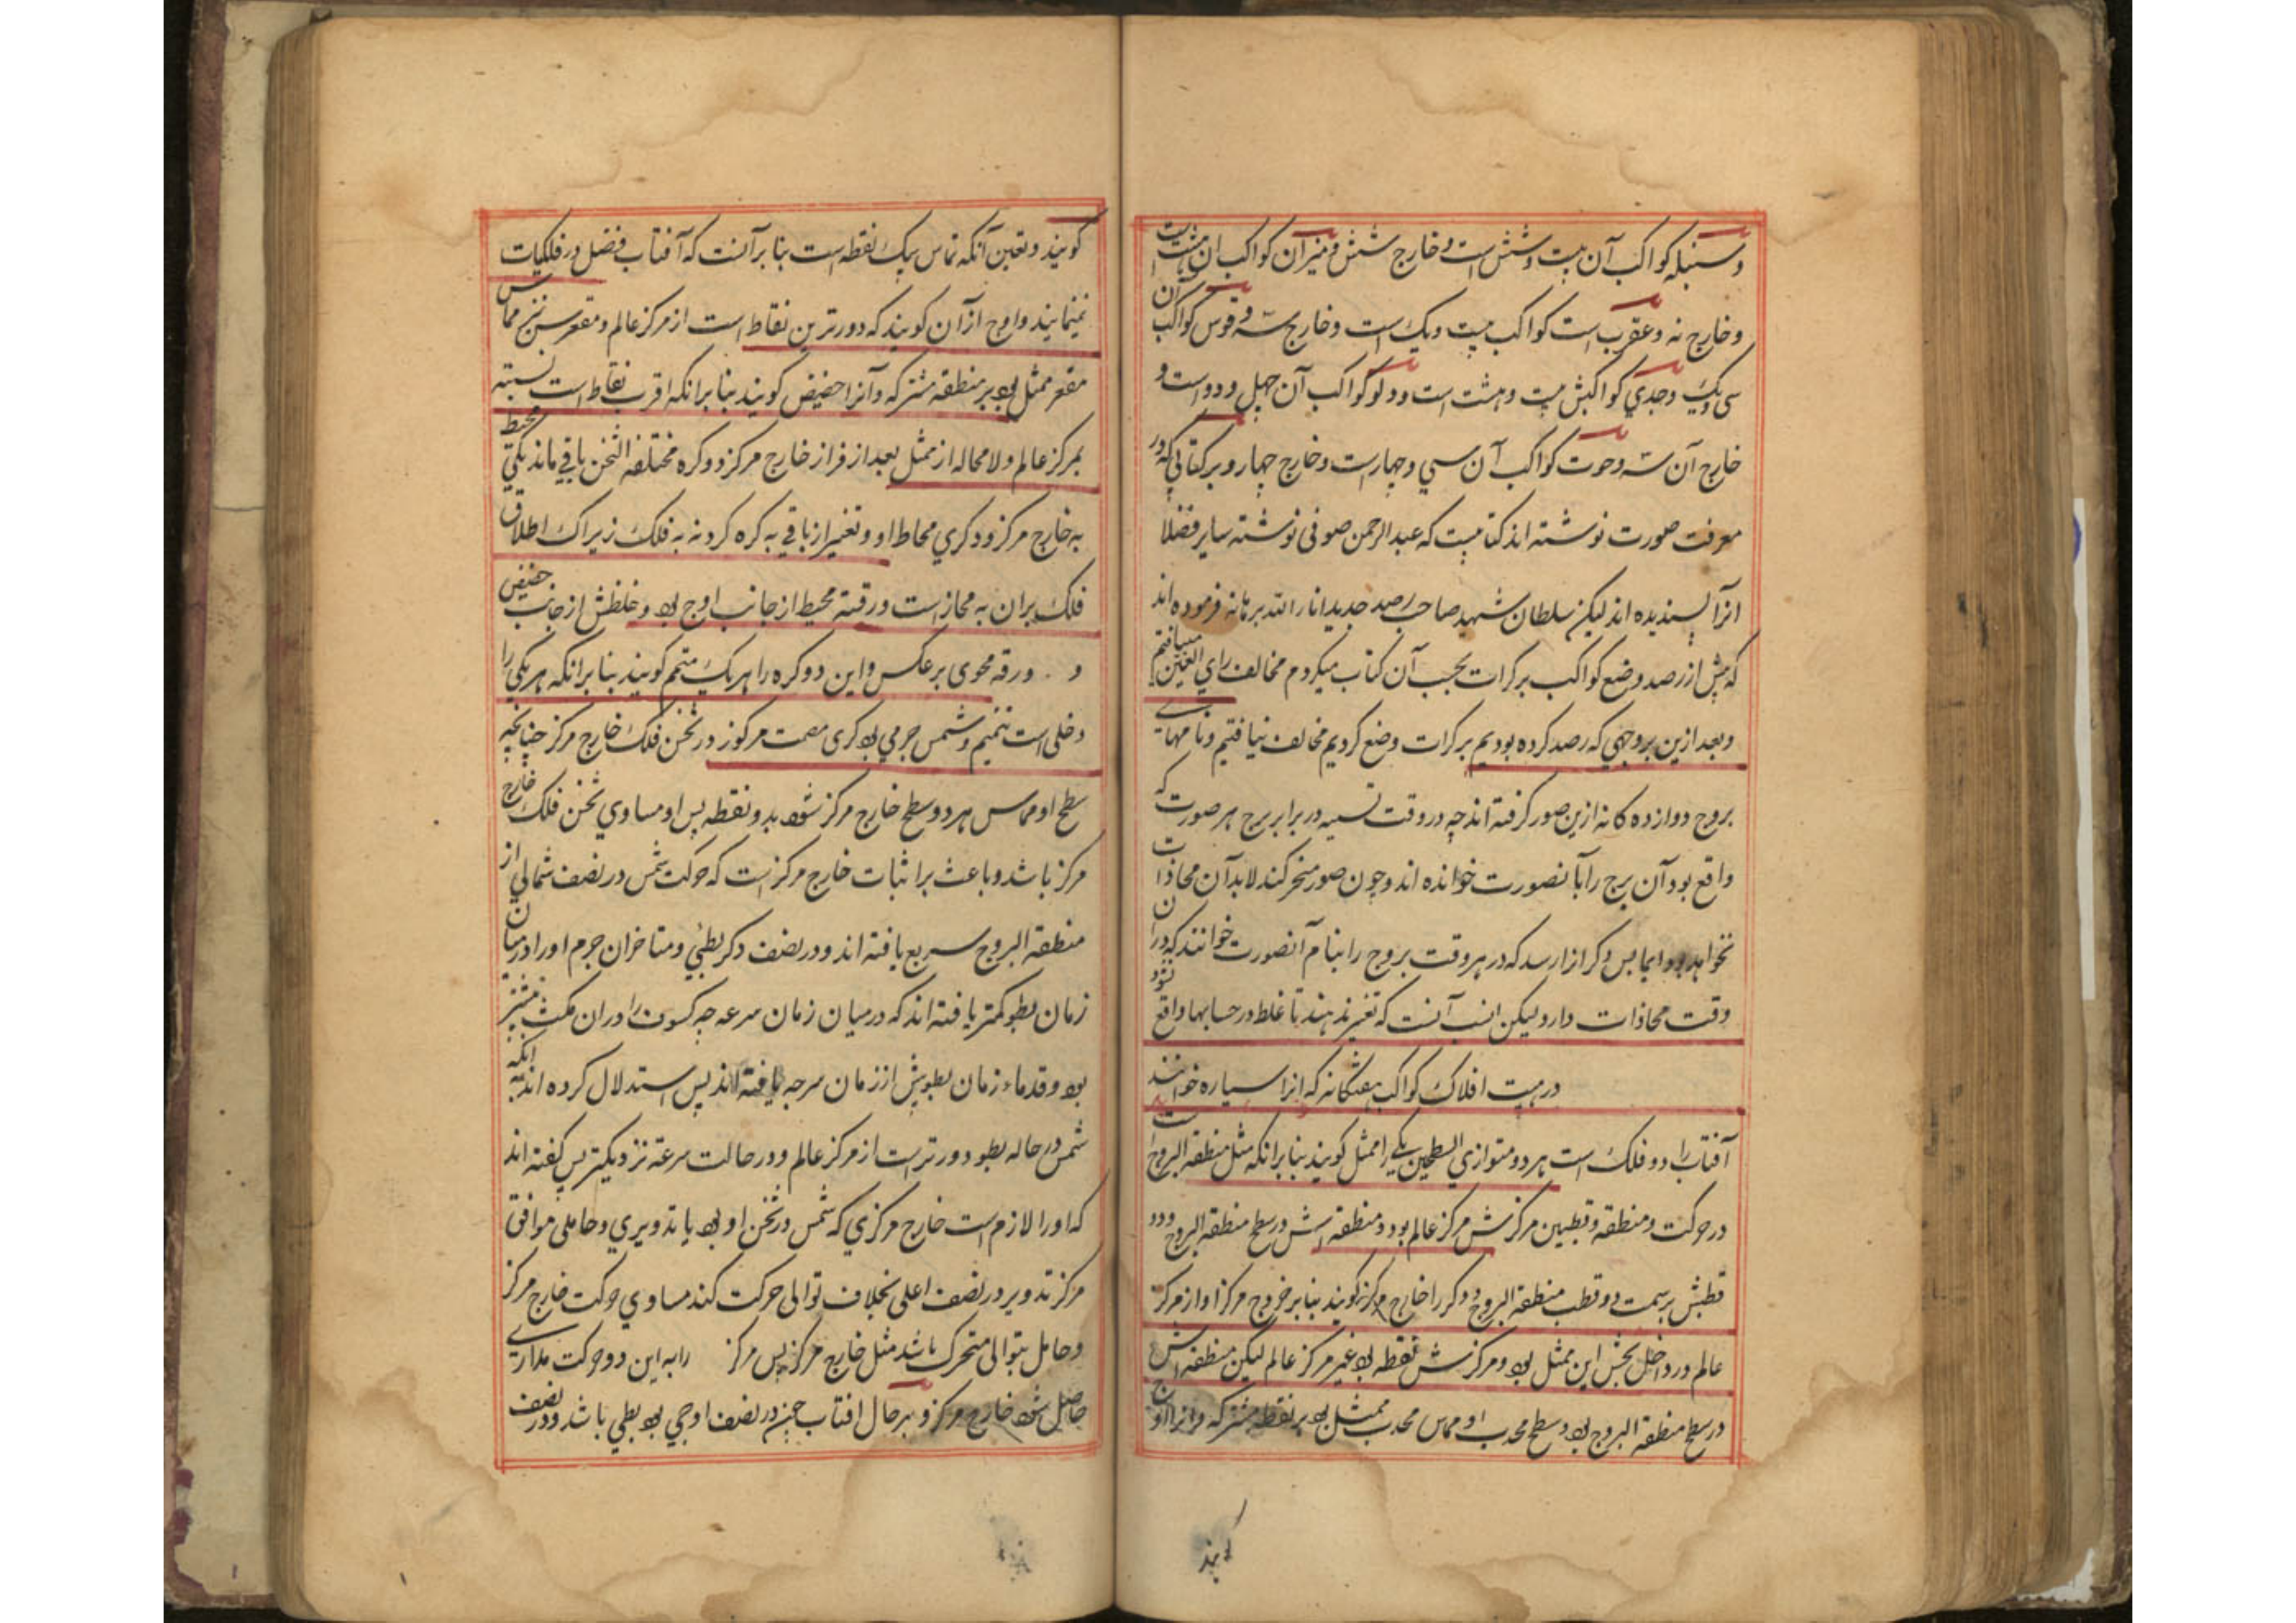 و سنبله کواکب آن بیست و شش است و خارج شش و میزان کواکب آن هشت است
و خارج نه و عقرب است کواکب بیست و یک است و خارج سه و قوس کواکب آن
سی و یک و جدي کواکبش بیست و هشت است و دلو کواکب آن چهل و دو است و
خارج آن سه و حوت کواکب آن سي و چهار است و خارج چهار و بر کتابي که در
معرفت صورت نوشته اند کتابیست که عبد الرحمن صوفی نوشته سایر فضلا
انرا پسندیده اند لیکن سلطان شهید صاحب رصد جدید انار الله برهانه فرموده اند
که پیش از رصد وضع کواکب بر کرات بحسب آن کتاب میکردم مخالف راي العین میافتم
و بعد ازین بر وجهي که رصد کرده بودیم بر کرات وضع کردیم مخالف نیافتیم و نامهاي
بروج دوازده کانه ازین صور کرفته اند چه در وقت تسمیه در برابر برج هر صورت که
واقع بود آن برج را بآنصورت خوانده اند و چون صور متحرکند لابد آن محاذات
نخواهد بود اما پس دکر ازا رسد که در هر وقت بروج را بنام آنصورت خوانند که در آن
وقت محاذات دارد لیکن انسب آنست که تغییر ندهند تا غلط در حسابها واقع نشود
در هیت افلاک کواکب هفتکانه که انرا سیاره خوانند
آفتاب را دو فلک است هر دو متوازي السطحین یکي را ممثل کویند بنابر انکه مثل منطقة البروج است
در حرکت و منطقه و قطبین مرکزش مرکز عالم بود و منطقه اش در سطح منطقة البروج و دو
قطبش بر سمت دو قطب منطقة البروج و دکر را خارج مرکز کویند بنابر خروج مرکز او از مرکز
عالم و در داخل ثخن این ممثل بود و مرکزش نقطه بود غیر مرکز عالم لیکن منطقه اش
در سطح منطقة البروج بود و سطح محدب او مماس محدب ممثل بود بر نقطه مشترکه و انرا اوج
کویند
کویند و تعین آنکه تماس بیک نقطه است بنابر آنست که آفتاب فصل در فلکیات
نمینمایند و اوج از آن کویند که دورترین نقاط است از مرکز عالم و مقعرش نیز مماس
مقعر ممثل بود بر منطقه مشترکه و آنرا حضیض کویند بنابر انکه اقرب نقاط است نسبته
بمرکز عالم و لا محاله از ممثل بعد از افراز خارج مرکز دو کره مختلفة الثخن باقي ماند یکي محیط
به خارج مرکز و دکري محاط او و تعبیر از باقي به کره کرد نه به فلک زیراک اطلاق
فلک بر آن به مجاز است و رقته محیط از جانب اوج بود و غلظش از جانب حضیض
و رقه محوی بر عکس و این دو کره را هر یک متمم کویند بنابر انکه هر یکي را
دخلی است تتمیم و شمس جرمي بود کری مصمت مرکوز در ثخن فلک خارج مرکز چنانچه
سطح او مماس هر دو سطح خارج مرکز شود بدو نقطه پس او مساوي ثخن فلک خارج
مرکز باشد و باعث بر اثبات خارج مرکز است که حرکت شمس در نصف شمالي از
منطقة البروج سریع یافته اند و در نصف دکر بطئي و متاخران جرم او را در میان
زمان بطو کمتر یافته اند که در میان زمان سرعه چه کسوف را در ان مکث بیشتر
بود و قدماء زمان بطو بیش از زمان سرعه یافته اند پس استدلال کرده اند بر انکه
شمس در حاله بطو دورتر است از مرکز عالم و در حالت سرعة نزدیکتر پس کفته اند
که او را لازم است خارج مرکزي که شمس در ثخن او بود یا تدویري و حاملی موافق
مرکز تدویر در نصف اعلی بخلاف توالی حرکت کند مساوي حرکت خارج مرکز
و حامل بتوالی متحرک باشد مثل خارج مرکز پس مرکز را به این دو حرکت مداري
حاصل شود خارج مرکز و بهر حال افتاب چون در نصف اوجي بود بطي باشد و در نصف